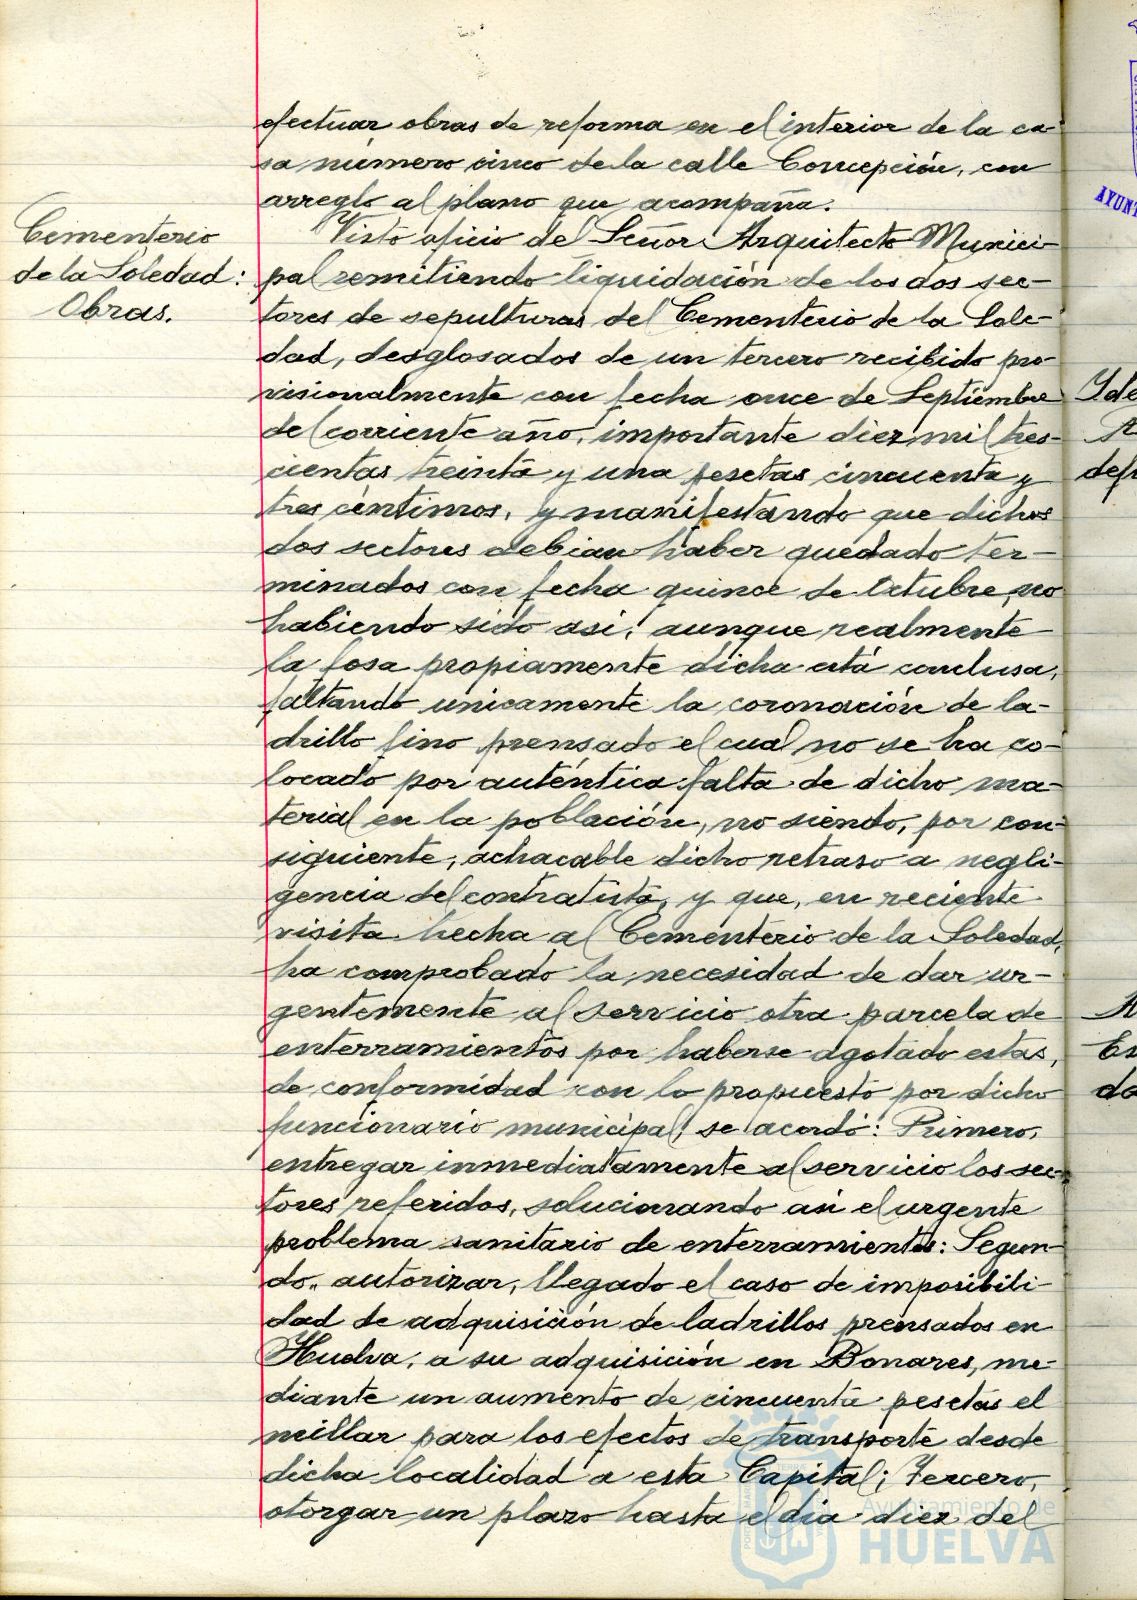 efectuar obras de reforma en el interior de la ca-
sa número cinco de la calle Concepción, con
arreglo al plano que acompaña.
Cementerio
de la Soledad:
Obras.
Visto oficio del Señor Arquitecto Munici-
pal remitiendo liquidación de los dos sec-
tores de sepulturas del Cementerio de la Sole-
dad, desglosados de un tercero recibido pro-
visionalmente con fecha once de Septiembre
del corriente año, importante diez mil tres-
cientas treinta y una pesetas cincuenta y
tres céntimos, y manifestando que dichos
dos sectores debian haber quedado ter-
minados con fecha quince de Octubre, no
habiendo sido asi, aunque realmente
la fosa propiamente dicha está conclusa,
faltando unicamente la coronación de la-
drillo fino prensado el cual no se ha co-
locado por auténtica falta de dicho ma-
terial en la población, no siendo, por con-
siguiente, achacable dicho retraso a negli-
gencia del contratista, y que, en reciente
visita hecha al Cementerio de la Soledad,
ha comprobado la necesidad de dar ur-
gentemente al servicio otra parcela de
enterramientos por haberse agotado estas,
de conformidad con lo propuesto por dicho
funcionario municipal, se acordó: Primero,
entregar inmediatamente al servicio los sec-
tores referidos, solucionando asi el urgente
problema sanitario de enterramientos: Segun-
do, autorizar, llegado el caso de imposibili-
dad de adquisición de ladrillos prensados en
Huelva, a su adquisición en Bonares, me-
diante un aumento de cincuenta pesetas el
millar para los efectos de transporte desde
dicha localidad a esta Capital; Tercero,
otorgar un plazo hasta el dia diez del
Ayuntamiento de
HUELVA